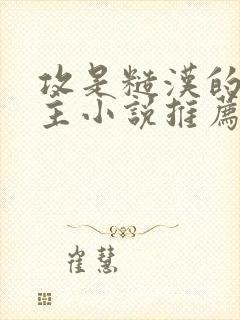 攻是糙漢的
主小說推薦
崔慧